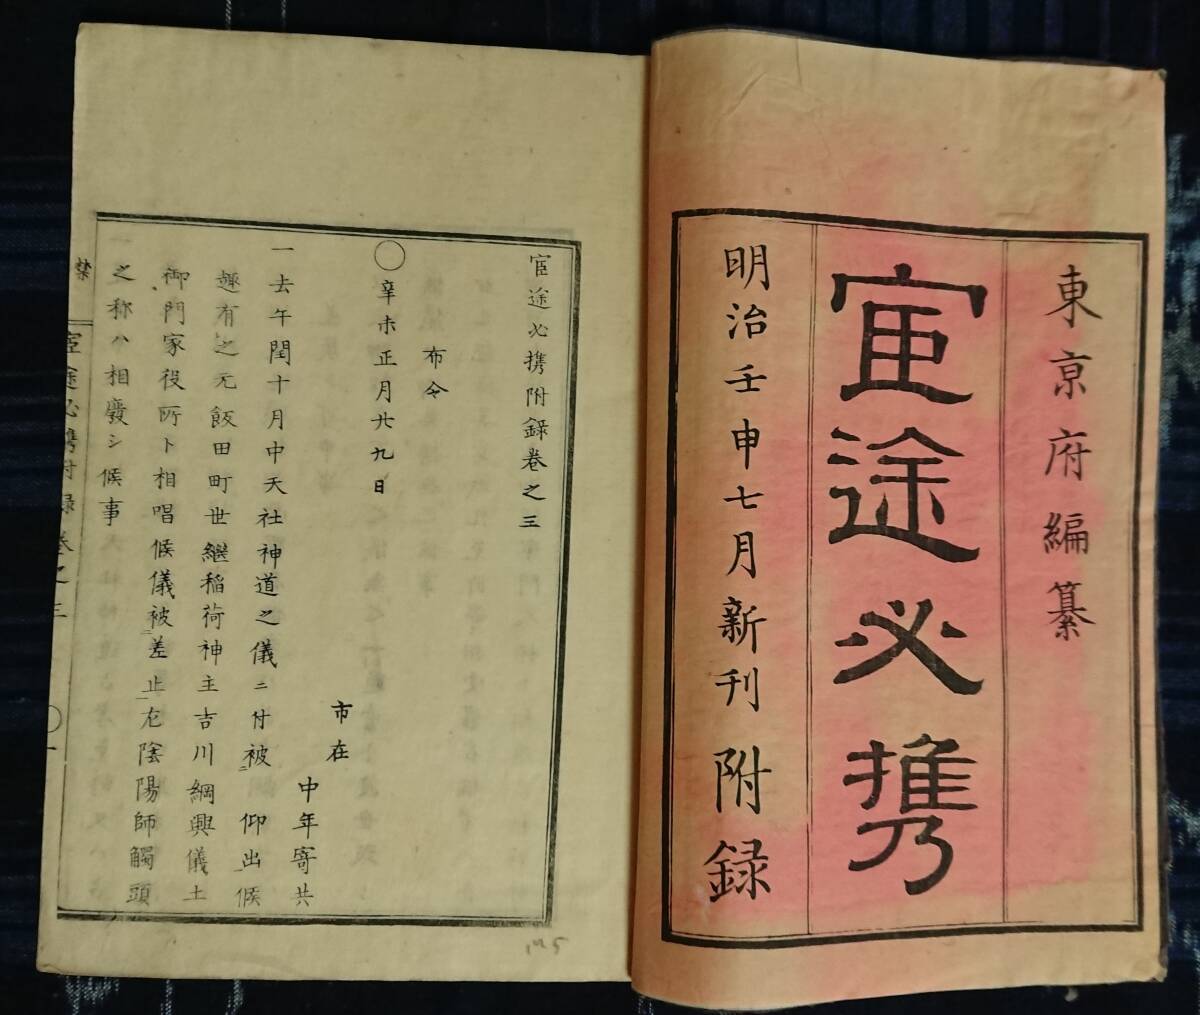 東京府編纂
宦途必携
明治壬申七月新刊附録
宦途必携附録巻之三
布令
〇辛未正月廿九日
市在
中年寄共
一去午閏十月中天社神道之儀ニ付被ニ仰出候
趣有之元飯田町世継稲荷神主吉川綱興儀土
御門家役所ト相唱候儀被ニ差止尤陰陽師觸頭
之称ハ相廢シ候事
禁
宦途必携附録巻之三
〇一